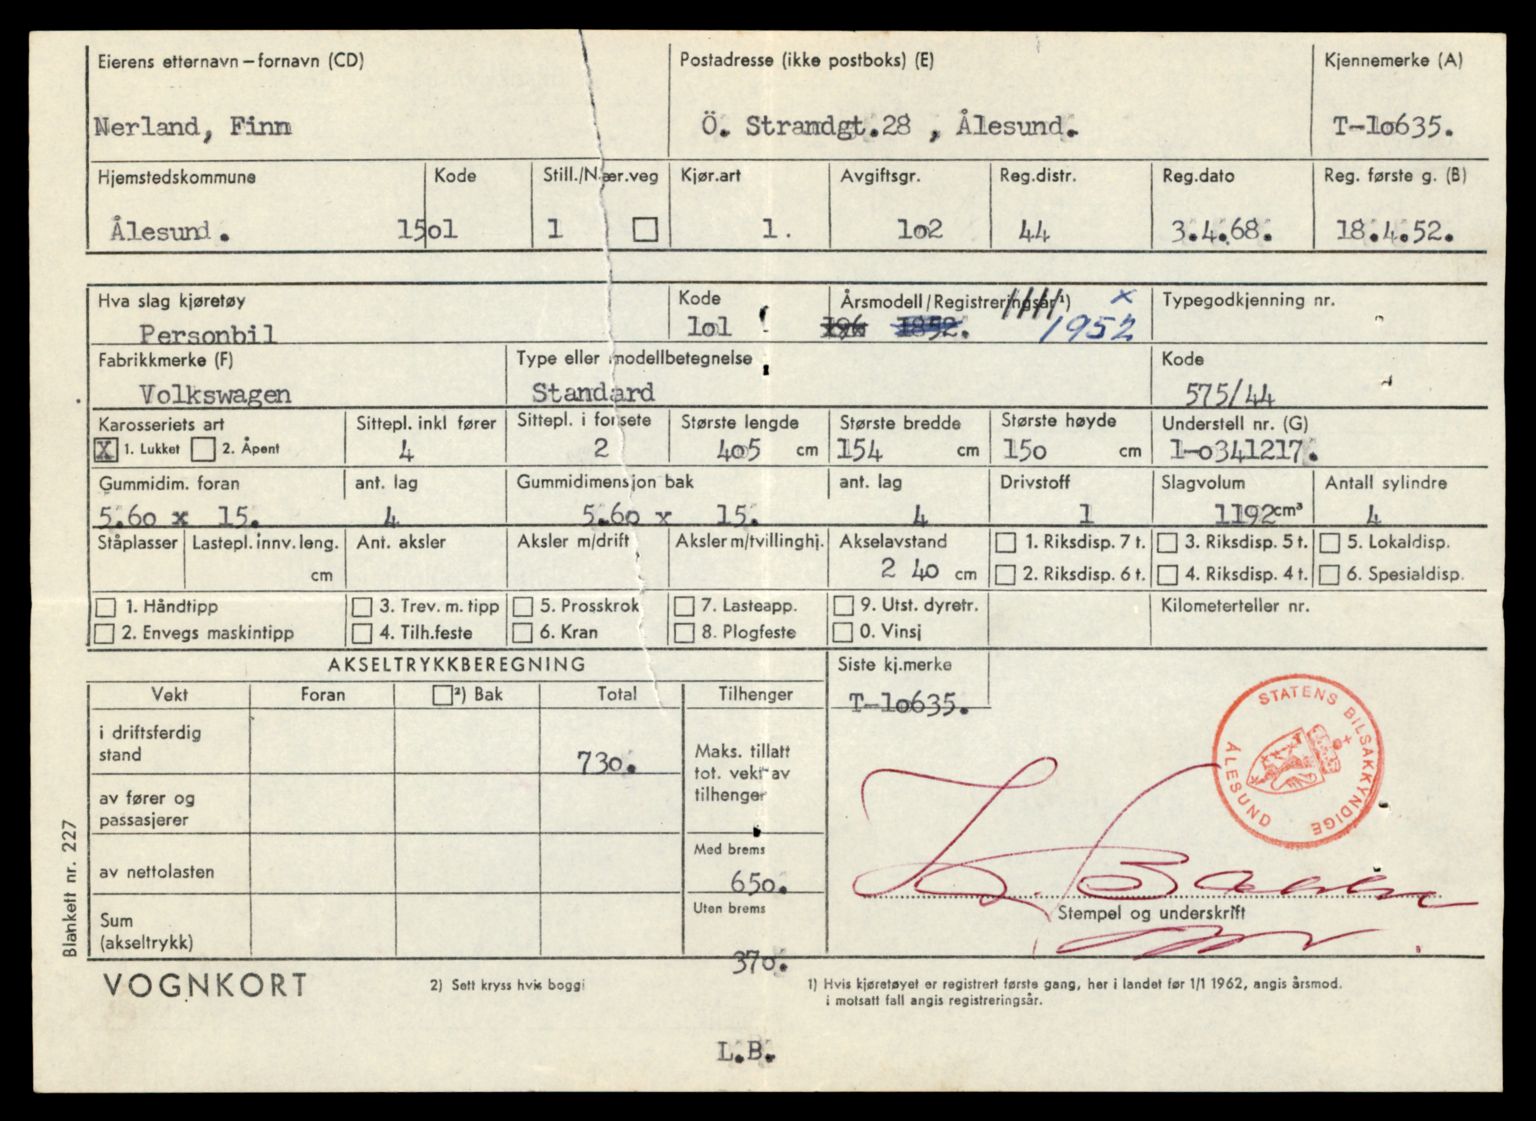 Eierens etternavn – fornavn (CD) Postadresse (ikke postboks) (E) Kjennemerke (A)
Nerland, Finn Ö. Strandgt.28 , Ålesund. T-lo635.
Hjemstedskommune Kode Still./Nær.veg Kjør.art Avgiftsgr. Reg.distr. Reg.dato Reg. første g. (B)
Ålesund. 15ol 1 1. lo2 44 3.4.68. 18.4.52.
Hva slag kjøretøy Kode Årsmodell/Registreringsår¹) x Typegodkjenning nr.
Personbil lol 196 1852. 1952
Fabrikkmerke (F) Type eller modellbetegnelse Kode
Volkswagen Standard 575/44
Karosseriets art Sittepl. inkl fører Sittepl. i forsete Største lengde Største bredde Største høyde Understell nr. (G)
X 1. Lukket 2. Åpent 4 2 4o5 cm 154 cm 15o cm 1-o341217.
Gummidim. foran ant. lag Gummidimensjon bak ant. lag Drivstoff Slagvolum Antall sylindre
5.6o x 15. 4 5.6o x 15. 4 1 1192cm³ 4
Ståplasser Lastepl. innv. leng. Ant. aksler Aksler m/drift Aksler m/tvillinghj. Akselavstand 1. Riksdisp. 7 t. 3. Riksdisp. 5 t. 5. Lokaldisp.
cm 2 4o cm 2. Riksdisp. 6 t. 4. Riksdisp. 4 t. 6. Spesialdisp.
1. Håndtipp 3. Trev. m. tipp 5. Prosskrok 7. Lasteapp. 9. Utst. dyretr. Kilometerteller nr.
2. Envegs maskintipp 4. Tilh.feste 6. Kran 8. Plogfeste 0. Vinsj
AKSELTRYKKBEREGNING Siste kj.merke
Vekt Foran ²) Bak Total Tilhenger
T-lo635.
STATENS BILSAKKYNDIGE
ÅLESUND
i driftsferdig
stand 73o.
Maks. tillatt
tot. vekt av
tilhenger
av fører og
passasjerer
Med brems
av nettolasten 65o.
Uten brems
Stempel og underskrift
Sum
(akseltrykk)
37o.
Blankett nr. 227
VOGNKORT 2) Sett kryss hvis boggi 1) Hvis kjøretøyet er registrert første gang, her i landet før 1/1 1962, angis årsmod.
i motsatt fall angis registreringsår.
L.B.